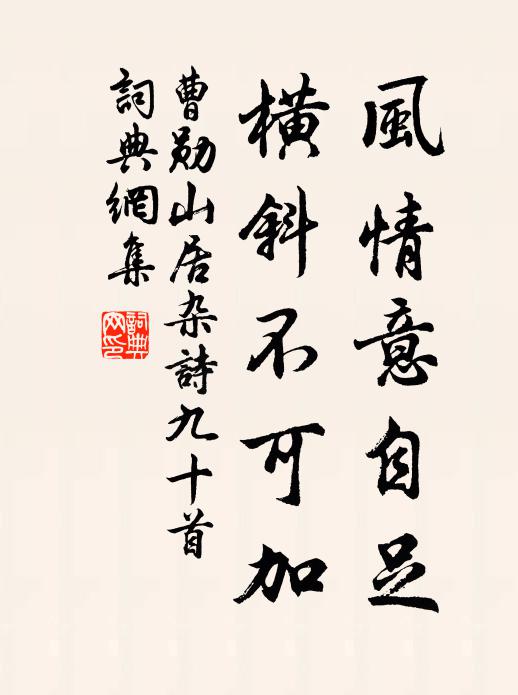 風情意自足
橫斜不可加
曹勛山居杂詩九十首
詞典網集
詞典
网印